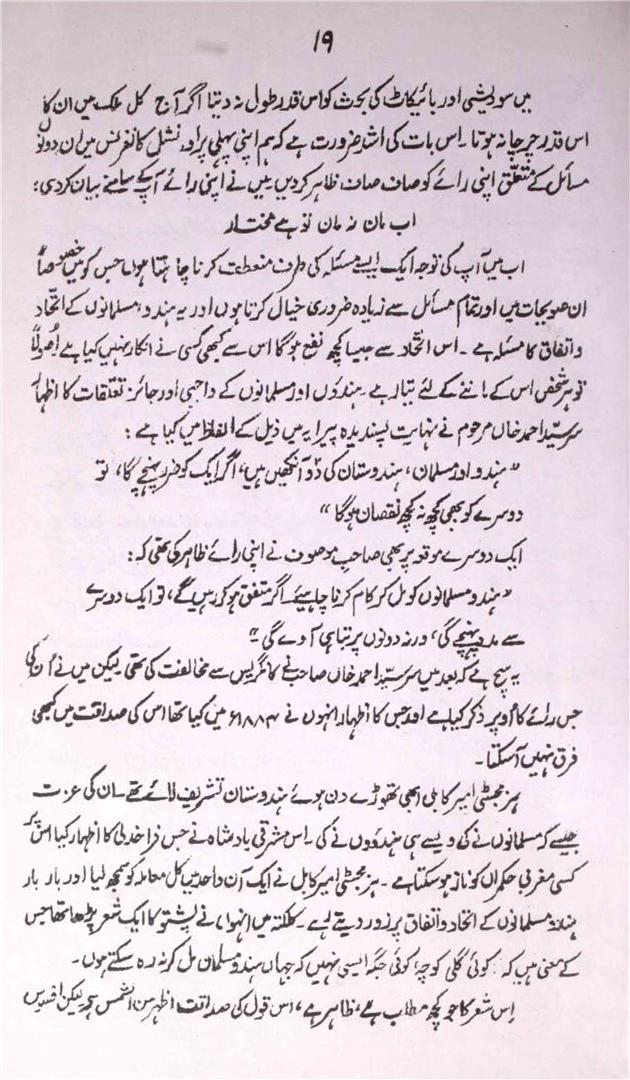 ۱۹
میں سودیشی اور بائیکاٹ کی بحث کو اس قدر طول نہ دیتا اگر آج کل ملک میں ان کا
اس قدر چرچا نہ ہوتا۔ اس بات کی اشد ضرورت ہے کہ ہم اپنی پہلی پراونشل کانفرنس میں ان دونوں
مسائل کے متعلق اپنی رائے کو صاف صاف ظاہر کردیں۔ میں نے اپنی رائے آپ کے سامنے بیان کردی؛
اب مان نہ مان تو ہے مختار
اب میں آپ کی توجہ ایک ایسے مسئلہ کی طرف منعطف کرنا چاہتا ہوں جس کو میں خصوصاً
ان صوبجات میں اور تمام مسائل سے زیادہ ضروری خیال کرتا ہوں اور یہ ہندو، مسلمانوں کے اتحاد
و اتفاق کا مسئلہ ہے۔ اس اتحاد سے جیسا کچھ نفع ہوگا اس سے کبھی کسی نے انکار نہیں کیا ہے اُصولاً
تو ہر شخص اس کے ماننے کے لئے تیار ہے۔ ہندوُں اور مسلمانوں کے واجبی اور جائز تعلقات کا اظہار
سر سیّد احمد خاں مرحوم نے نہایت پسندیدہ پیرایہ میں ذیل کے الفاظ میں کیا ہے:
"ہندو اور مسلمان، ہندوستان کی دو آنکھیں ہیں، اگر ایک کو ضرر پہنچے گا، تو
دوسرے کو بھی کچھ نہ کچھ نقصان ہوگا"
ایک دوسرے موقع پر بھی صاحب موصوف نے اپنی رائے ظاہر کی تھی کہ:
"ہندو مسلمانوں کو مل کر کام کرنا چاہیئے۔ اگر متفق ہو کر رہیں گے، تو ایک دوسرے
سے مدد پہنچے گی، ورنہ دونوں پر تباہی آوے گی"
یہ سچ ہے کہ بعد میں سر سیّد احمد خاں صاحب نے کانگریس سے مخالفت کی تھی لیکن میں نے اُن کی
جس رائے کا اُوپر ذکر کیا ہے اور جس کا اظہار انہوں نے ۱۸۸۴ء میں کیا تھا اس کی صداقت میں کبھی
فرق نہیں آسکتا۔
ہز مجسٹی امیر کابل ابھی تھوڑے دن ہوئے ہندوستان تشریف لائے تھے۔ ان کی عزت
جیسے کہ مسلمانوں نے کی ویسے ہی ہندوُوں نے کی۔ اس مشرقی بادشاہ نے جس فراخدلی کا اظہار کیا اس پر
کسی مغربی حکمراں کو ناز ہوسکتا ہے۔ ہز مجسٹی امیر کابل نے ایک آن واحد میں کل معاملہ کو سمجھ لیا اور بار بار
ہندو مسلمانوں کے اتحاد و اتفاق پر زور دیتے رہے۔ کلکتہ میں انہوں نے پشتو کا ایک شعر پڑھا تھا جس
کے معنی ہیں کہ: کوئی گلی کوچہ، کوئی جگہ ایسی نہیں کہ جہاں ہندو مسلمان مل کر نہ رہ سکتے ہوں۔
اِس شعر کا جو کچھ مطلب ہے، ظاہر ہے، اس قول کی صداقت اظہر من الشمس ہے۔ لیکن افسوس